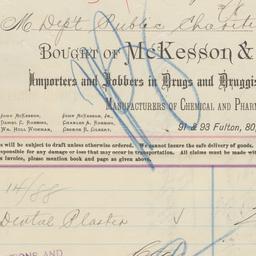 M Dept Public Chariti
Bought of McKesson &
Importers and Jobbers in Drugs and Druggis
Manufacturers of Chemical and Pharm
John McKesson, John McKesson, Jr,
Daniel C. Robbins, Charles A. Robbins,
Wm. Hull Wickham, George B. Gilbert.
91 & 93 Fulton, 80,
will be subject to draft unless otherwise ordered. We cannot insure the safe delivery of goods.
responsible for any damage or loss that may occur in transportation. All claims must be made wit
s Invoice, please mention book and page as given above.
14/88
Dental Plaster
TIONS AND